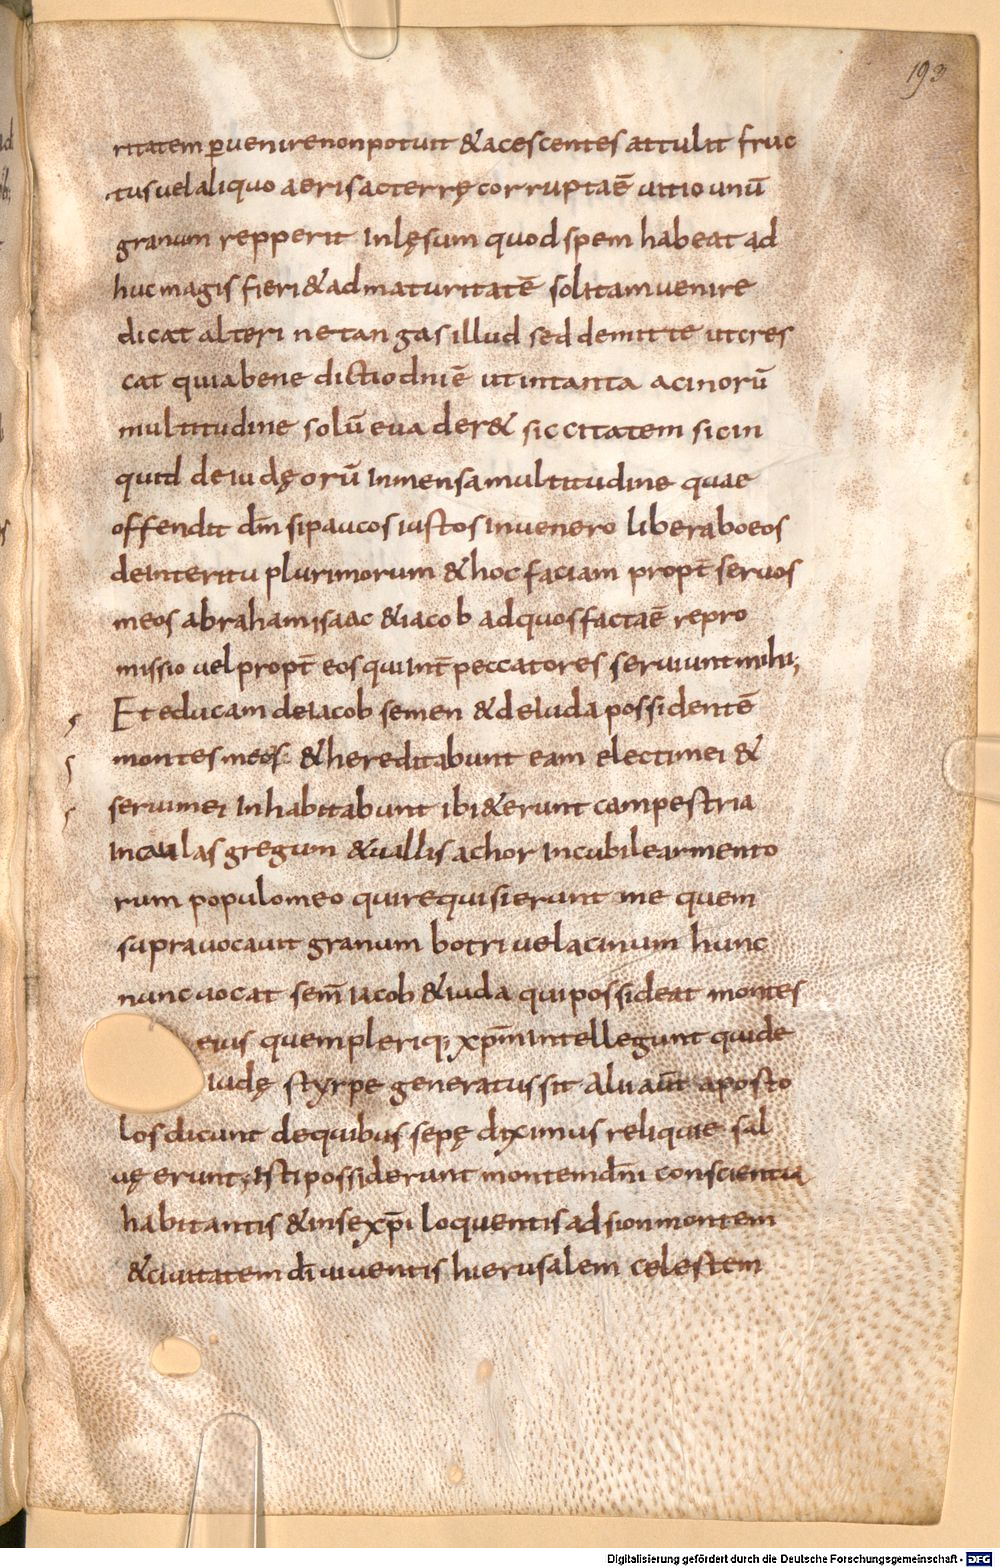 193
ritatem ꝑuenire non potuit & acescentes attulit fruc
tus uel aliquo aeris ac terrę corrupta ē uitio unū
granum repperit inlęsum quod spem habeat ad
huc magis fieri & ad maturitatē solitam uenire
dicat alteri ne tangas illud sed demitte ut cres
cat quia benedictio dni ē ut in tanta acinorū
multitudine solū euader& siccitatem sic in
quid de iudęorū inmensa multitudine quae
offendit dm̄ si paucos iustos inuenero liberabo eos
de interitu plurimorum & hoc faciam propt̄ seruos
meos abraham isaac & iacob ad quos facta ē repro
missio uel propt̄ eos qui int̄ peccatores seruiunt mihi;
Et educam de iacob semen & de iuda possidentē
montes meos & hereditabunt eam electi mei &
serui mei inhabitabunt ibi & erunt campestria
in caulas gregum & uallis achor in cubile armento
rum populo meo qui requisierunt me quem
supra uocauit granum botri uel acinum hunc
nunc uocat sem̄ iacob & iuda qui possideat montes
eius quem pleriq; xp̄m intellegunt qui de
iudę styrpe generatus sit alii aut̄ aposto
los dicunt de quibus sepę diximus reliquie sal
uę erunt; Isti possiderunt montem dn̄i conscientia
habitantis & in se xp̄i loquentis ad sion montem
& ciuitatem dī uiuentis hierusalem celestem
Digitalisierung gefördert durch die Deutsche Forschungsgemeinschaft - DFG